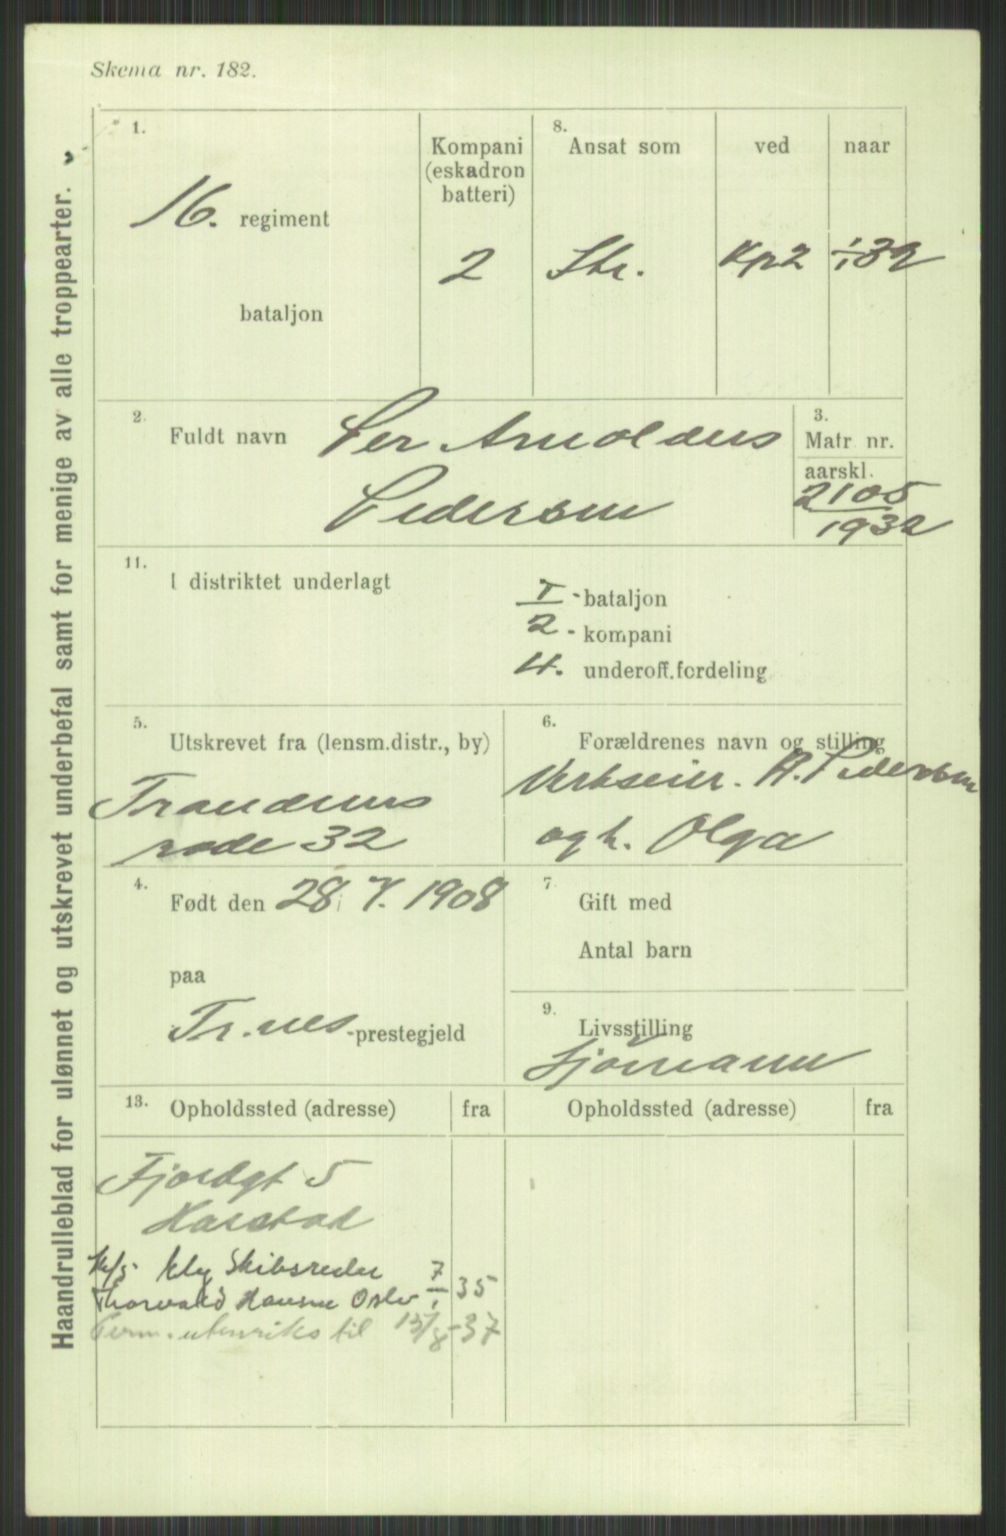 Skema nr. 182.
Haandrulleblad for ulønnet og utskrevet underbefal samt for menige av alle troppearter.
1.
16. regiment
bataljon
Kompani
(eskadron
batteri)
2
8.
Ansat som
Str.
ved
Kp2
naar
1/1 32
2.
Fuldt navn Per Arnoldus
Pedersen
3.
Matr nr.
aarskl.
2105
1932
11.
I distriktet underlagt
I -bataljon
2 - kompani
4. underoff.fordeling
5.
Utskrevet fra (lensm.distr., by)
Trondenes
rode 32
6.
Forældrenes navn og stilling
Verkseier. A. Pedersen
og h. Olga
4.
Født den 28. 7. 1908
paa
Tr.nes -prestegjeld
7.
Gift med
Antal barn
9.
Livsstilling
Sjømann
13. Opholdssted (adresse) fra
Opholdssted (adresse) fra
Fjordgt 5
Harstad
M/S. Skibsreder
Thorvald Hansen Oslo 7/1 35
Perm. utenriks til 15/8-37